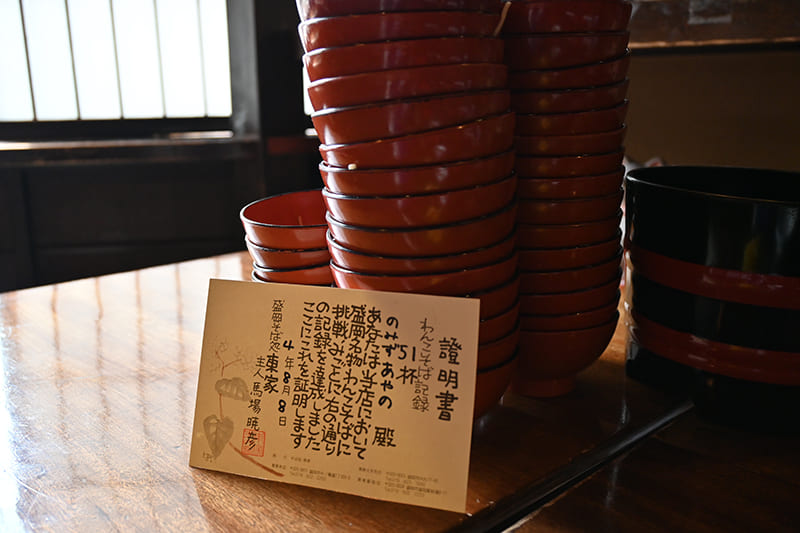 證明書
わんこそば記録
51杯
のみずあやの 殿
あなたは当店において
盛岡名物わんこそばに
挑戦みごとに右の通り
の記録を達成しました
ここにこれを証明します
4年8月8日
盛岡そば処 東家
主人 馬場暁彦